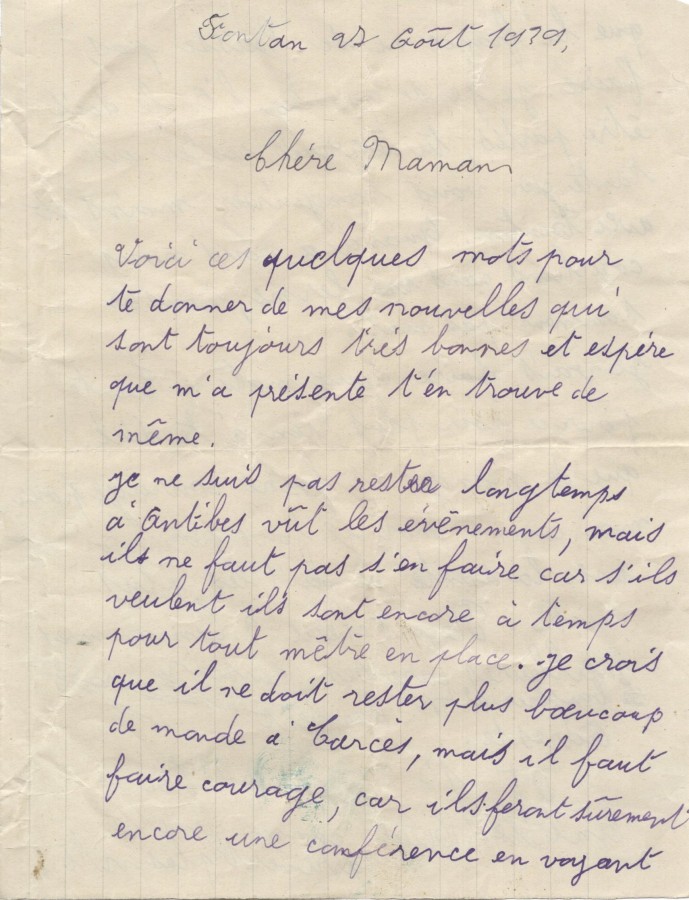 Fontan 27 Août 1939,
Chére Maman
Voici ces quelques mots pour
te donner de mes nouvelles qui
sont toujours trés bonnes et espére
que m'a présente t'en trouve de
même.
je ne suis pas restee longtemps
a' Antibes vût les événements, mais
ils ne faut pas s'en faire car s'ils
veulent ils sont encore à temps
pour tout mêtre en place. je crois
que il ne doit rester plus bœucoup
de monde a' Carcès, mais il faut
faire courage, car ils feront sûrement
encore une conférence en voyant